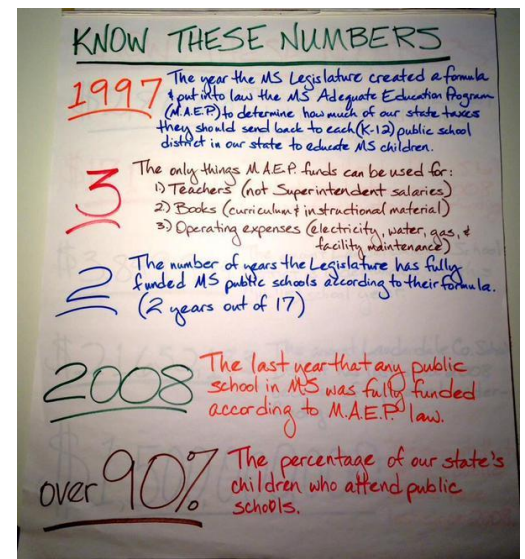 KNOW THESE NUMBERS
1997 The year the MS Legislature created a formula
& put into law the MS Adequate Education Program
(M.A.E.P.) to determine how much of our state taxes
they should send back to each (K-12) public school
district in our state to educate MS children.
3 The only things M.A.E.P. funds can be used for:
1) Teachers (not Superintendent salaries)
2) Books (curriculum & instructional material)
3) Operating expenses (electricity, water, gas, &
facility maintenance)
2 The number of years the Legislature has fully
funded MS public schools according to their formula.
(2 years out of 17)
2008 The last year that any public
school in MS was fully funded
according to M.A.E.P. law.
over 90% The percentage of our state's
children who attend public
schools.